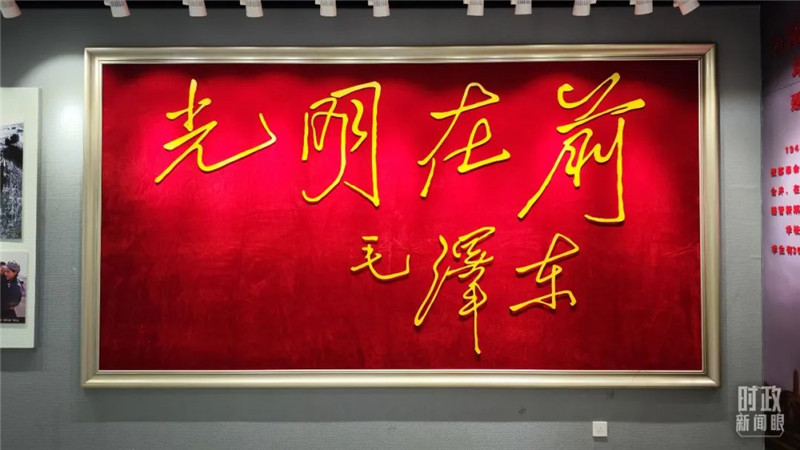 光明在前
毛澤东
194
时政
新闻眼